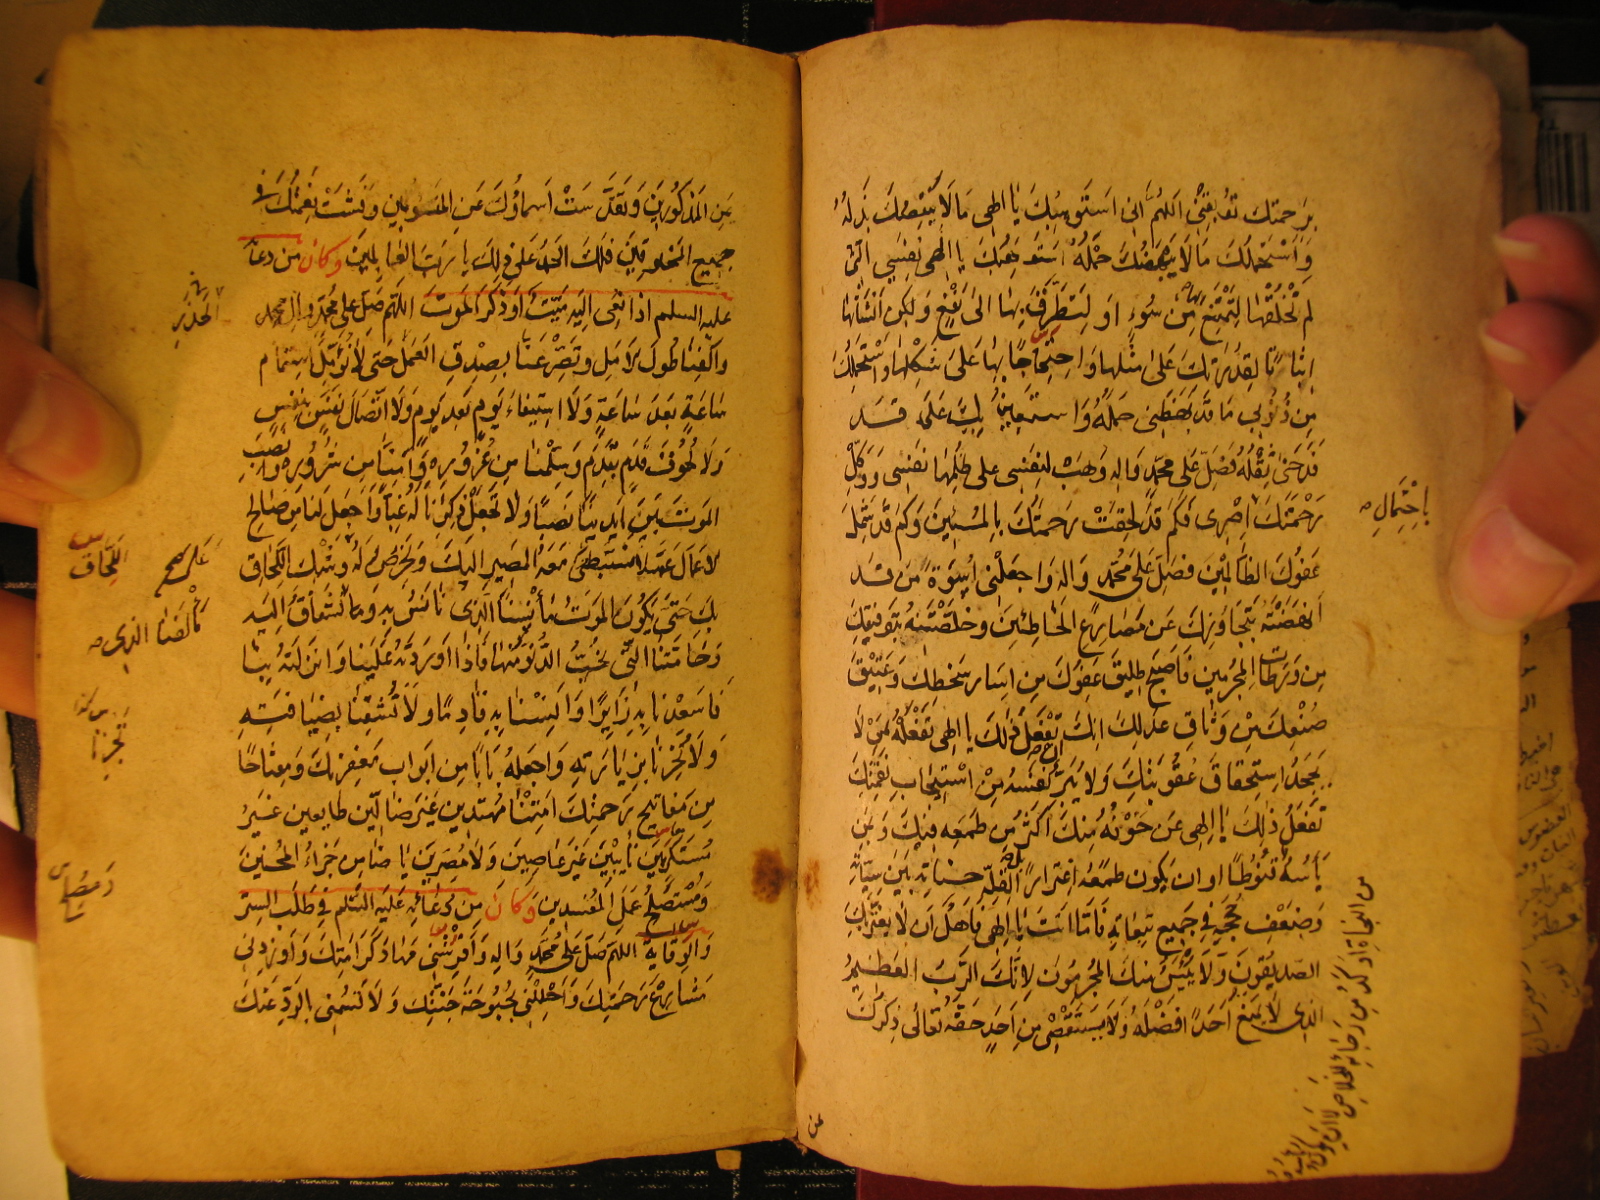 برحمتك تعد بعتني اللهم اني استوهبك يا الهي ما لا ينقصك بذله
واستحملك ما لا يبهضك حمله استوهبك يا الهي نفسي التي
لم تخلقها لتمتنع بها من سوء او لتتطرق بها الى نفع ولكن انشأتها
اثباتا لقدرتك على مثلها واحتجاجا بها على شكلها واستحملك
من ذنوبي ما قد بهظني حمله واستعين بك على ما قد
فدحني ثقله فصل على محمد واله وهب لنفسي على ظلمها نفسي ووكل
رحمتك اصرى فكم قد لحقت رحمتك بالمسيئين وكم قد شمل
عفوك الظالمين فصل على محمد واله واجعلني اسوة من قد
انهضته بتجاوزك عن مصارع الخاطئين وخلصته بتوفيقك
من ورطات المجرمين فاصبح طليق عفوك من اسار سخطك وعتيق
صنعك من وثاق عدلك انك ان تفعل ذلك يا الهي تفعله بمن لا
يجحد استحقاق عقوبتك ولا يبرئ نفسه من استيجاب نقمتك
تفعل ذلك يا الهي بمن خوفه منك اكثر من طمعه فيك وبمن
يأسه قنوطا او ان يكون طمعه اغترارا بل لقلة حسناته بين سيئاته
وضعف حججه في جميع تبعاته فاما انت يا الهي فاهل ان لا يغتر بك
الصديقون ولا ييئس منك المجرمون لانك الرب العظيم
الذي لا يمنع احدا فضله ولا يستقصي من احد حقه تعالى ذكرك
باحتمال
من النجاة اوكد من رجائه للخلاص لا ان يكون
عن
عن المذكورين وتقدست اسماؤك عن المنسوبين وفشت نعمتك في
جميع المخلوقين فلك الحمد على ذلك يا رب العالمين وكان من دعائه
عليه السلم اذا نعي اليه ميت او ذكر الموت اللهم صل على محمد وال محمد
واكفنا طول الامل وقصره عنا بصدق العمل حتى لا نؤمل استتمام
ساعة بعد ساعة ولا استيفاء يوم بعد يوم ولا اتصال نفس بنفس
ولا لحوق قدم بقدم وسلمنا من غروره وامنا من شروره وانصب
الموت بين ايدينا نصبا ولا تجعل ذكرنا له غبا واجعل لنا من صالح
الاعمال عملا نستبطئ معه المصير اليك ونحرص له وشك اللحاق
بك حتى يكون الموت مأنسنا الذي نانس به ومألفنا الذي نشتاق اليه
وحامتنا التي نحب الدنو منها فاذا اوردته علينا وانزلته بنا
فاسعدنا به زايرا وانسنا به قادما ولا تشقنا بضيافته
ولا تخزنا بزيارته واجعله بابا من ابواب مغفرتك ومفتاحا
من مفاتيح رحمتك امتنا مهتدين غير ضالين طايعين غير
مستكرهين تايبين غير عاصين ولا مصرين يا ضامن جزاء المحسنين
ومستصلح عمل المفسدين وكان من دعائه عليه السلم في طلب الستر
والوقاية اللهم صل على محمد واله وافرشني مهاد كرامتك واوردني
مشارع رحمتك واحللني بحبوحة جنتك ولا تسمني بالرد عنك
اللحاق
مألفنا الذي
تحزنا